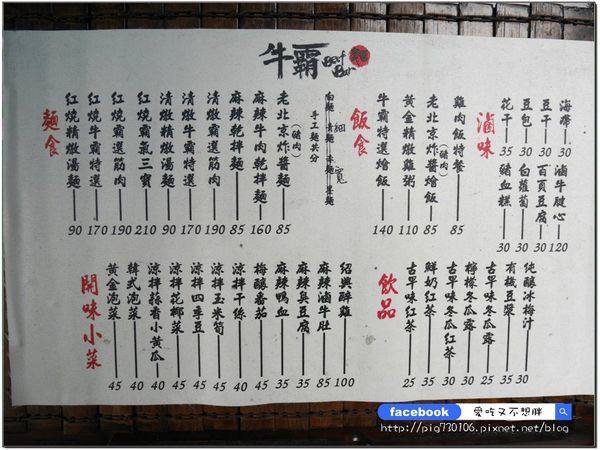 牛霸 Beef Bar
麵食
紅燒精燉湯麵 90
紅燒牛霸特選 170
紅燒霸選筋肉 190
紅燒霸氣三寶 210
清燉精燉湯麵 90
清燉牛霸特選 170
清燉霸選筋肉 190
麻辣乾拌麵 85
麻辣牛肉乾拌麵 160
老北京炸醬麵(豬肉) 85
手工麵共分
白麵 青麵 赤麵 墨麵
細 寬
飯食
牛霸特選燴飯 140
黃金精燉雞粥 110
老北京炸醬燴飯(豬肉) 85
雞肉飯特餐 85
滷味
花干 35
豆包 30
豆干 30
海帶 30
豬血糕 30
白蘿蔔 30
百頁豆腐 30
滷牛腱心 120
開味小菜
黃金泡菜 45
韓式泡菜 40
涼拌蒜香小黃瓜 40
涼拌花椰菜 45
涼拌四季豆 45
涼拌玉米筍 45
涼拌干絲 40
梅釀番茄 40
麻辣鴨血 35
麻辣臭豆腐 35
麻辣滷牛肚 85
紹興醉雞 100
飲品
古早味紅茶 25
鮮奶紅茶 35
古早味冬瓜紅茶 30
檸檬冬瓜露 30
古早味冬瓜露 25
有機豆漿 35
純釀冰梅汁 30
facebook 愛吃又不想胖
http://pig730106.pixnet.net/blog